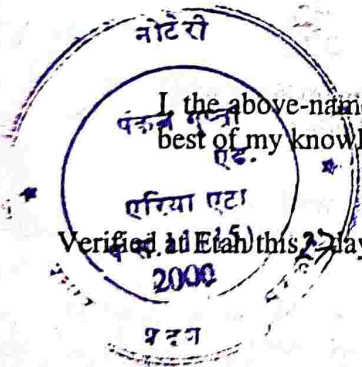 नोटेरी
I, the above-name
पंकज गुप्ता
best of my knowl
एड.
एरिया एटा
Verified at Etah this 22 day
2000